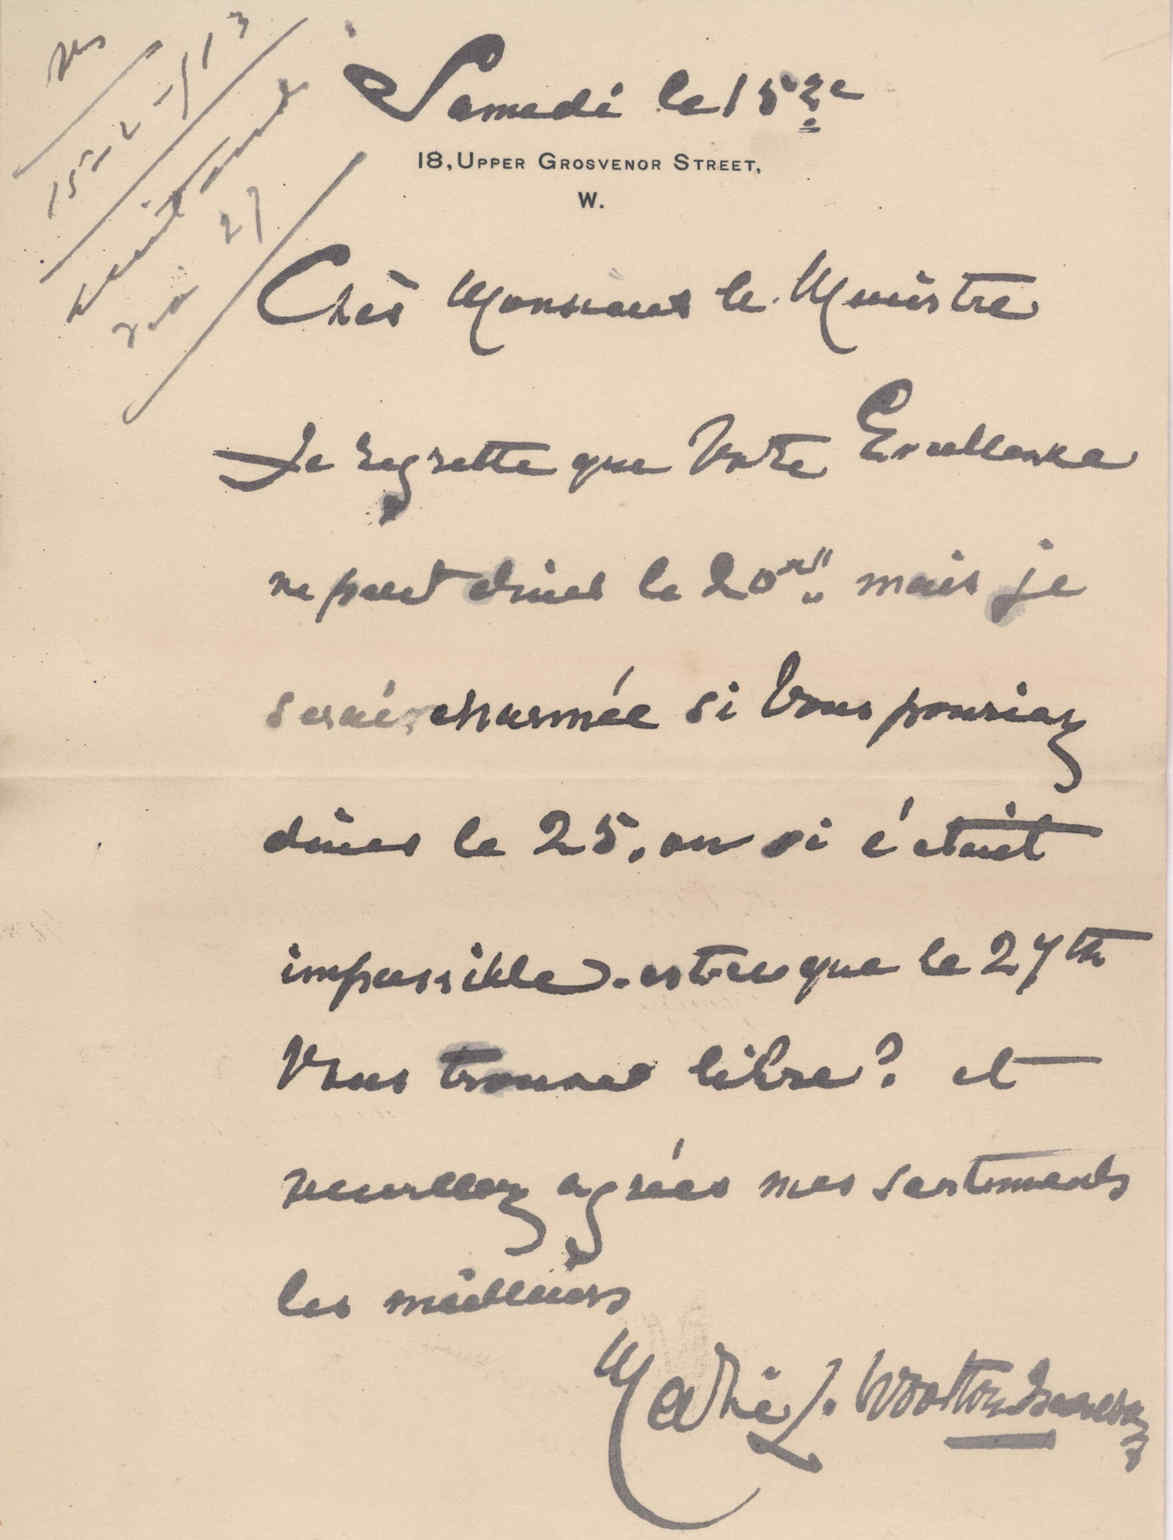 15-2-913
27
Samedi le 15
18, UPPER GROSVENOR STREET,
W.
Chèr Monsieur le Ministre
Je regrette que Votre Excellence
ne peut diner le 20 mais je
serais charmée si Vous pouriez
diner le 25, ou si c'etait
impossible. est ce que le 27th
Vous trouves libre? et
veuillez agréer mes sentiments
les meilleurs